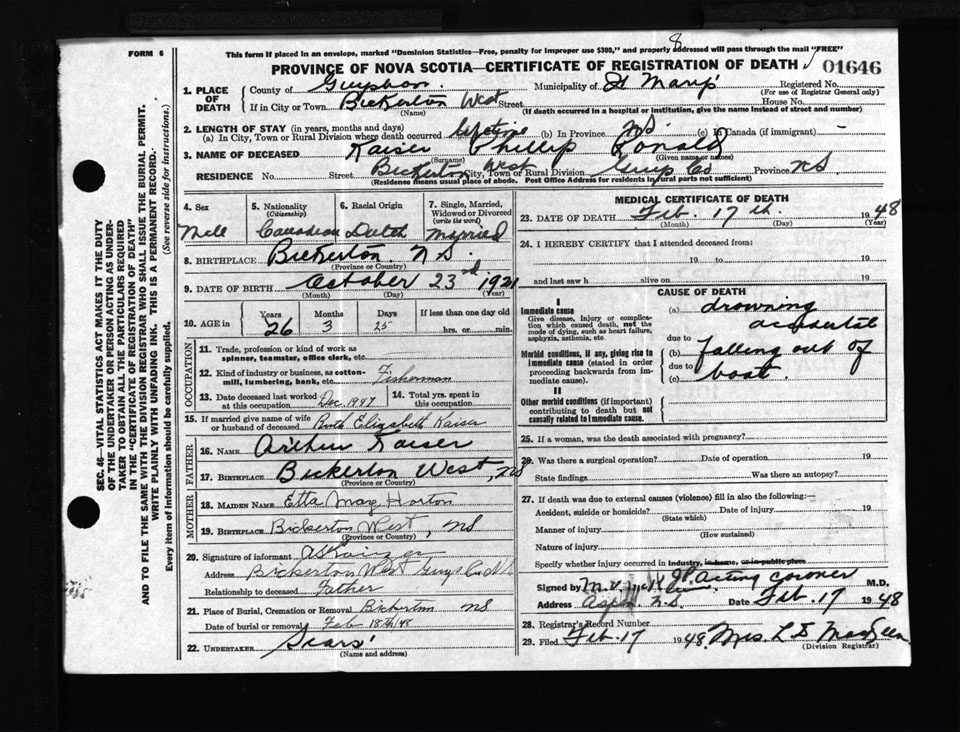 FORM 6
This form if placed in an envelope, marked "Dominion Statistics—Free, penalty for improper use $300," and properly addressed will pass through the mail "FREE"
8
PROVINCE OF NOVA SCOTIA—CERTIFICATE OF REGISTRATION OF DEATH
01646
1. PLACE OF DEATH
County of Municipality of St Mary's Registered No.
(For use of Registrar General only)
If in City or Town Bickerton West Street House No.
(Name) (If death occurred in a hospital or institution, give the name instead of street and number)
2. LENGTH OF STAY (in years, months and days)
(a) In City, Town or Rural Division where death occurred lifetime (b) In Province NS. (c) In Canada (if immigrant) –
3. NAME OF DECEASED Kaiser Phillip Ronald
(Surname) (Given name or names)
RESIDENCE No. Street Bickerton West City, Town or Rural Division Guys Co Province NS
(Residence means usual place of abode. Post Office Address for residents in rural parts not sufficient)
4. Sex
5. Nationality (Citizenship)
6. Racial Origin
7. Single, Married, Widowed or Divorced (write the word)
Male Canadian Dutch Married
8. BIRTHPLACE Bickerton N.S.
(Province or Country)
9. DATE OF BIRTH October 23rd 1921
(Month) (Day) (Year)
10. AGE in Years Months Days If less than one day old
26 3 25 hrs. or min.
OCCUPATION
11. Trade, profession or kind of work as spinner, teamster, office clerk, etc.
12. Kind of industry or business, as cotton-mill, lumbering, bank, etc. Fisherman
13. Date deceased last worked at this occupation Dec. 1947
14. Total yrs. spent in this occupation
15. If married give name of wife or husband of deceased Ruth Elizabeth Kaiser
FATHER
16. NAME Arthur Kaiser
17. BIRTHPLACE Bickerton West, NS
(Province or Country)
MOTHER
18. MAIDEN NAME Etta May Horton
19. BIRTHPLACE Bickerton West, NS
(Province or Country)
20. Signature of informant
Address Bickerton West Guys Co NS
Relationship to deceased Father
21. Place of Burial, Cremation or Removal Bickerton NS
Date of burial or removal Feb 18th/48
22. UNDERTAKER Sears'
(Name and address)
MEDICAL CERTIFICATE OF DEATH
23. DATE OF DEATH Feb. 17 th. 1948
(Month) (Day) (Year)
24. I HEREBY CERTIFY that I attended deceased from:
19 to 19
and last saw h alive on 19
CAUSE OF DEATH
I
Immediate cause
Give disease, injury or complication which caused death, not the mode of dying, such as heart failure, asphyxia, asthenia, etc.
(a) drowning accidental
due to
Morbid conditions, if any, giving rise to immediate cause (stated in order proceeding backwards from immediate cause).
(b) falling out of
due to
(c) boat.
II
Other morbid conditions (if important) contributing to death but not causally related to immediate cause.
25. If a woman, was the death associated with pregnancy?
26. Was there a surgical operation? Date of operation 19
State findings Was there an autopsy?
27. If death was due to external causes (violence) fill in also the following:—
Accident, suicide or homicide? Date of injury 19
(State which)
Manner of injury
(How sustained)
Nature of injury
Specify whether injury occurred in industry, in home, or in public place
Signed by acting coroner M.D.
Address N.S. Date Feb. 17 1948
28. Registrar's Record Number
29. Filed Feb. 17 1948. Mrs.
(Division Registrar)
SEC. 46—VITAL STATISTICS ACT MAKES IT THE DUTY OF THE UNDERTAKER OR PERSON ACTING AS UNDERTAKER TO OBTAIN ALL THE PARTICULARS REQUIRED IN THE "CERTIFICATE OF REGISTRATION OF DEATH" AND TO FILE THE SAME WITH THE DIVISION REGISTRAR WHO SHALL ISSUE THE BURIAL PERMIT.
WRITE PLAINLY WITH UNFADING INK. THIS IS A PERMANENT RECORD.
Every item of information should be carefully supplied. (See reverse side for instructions.)